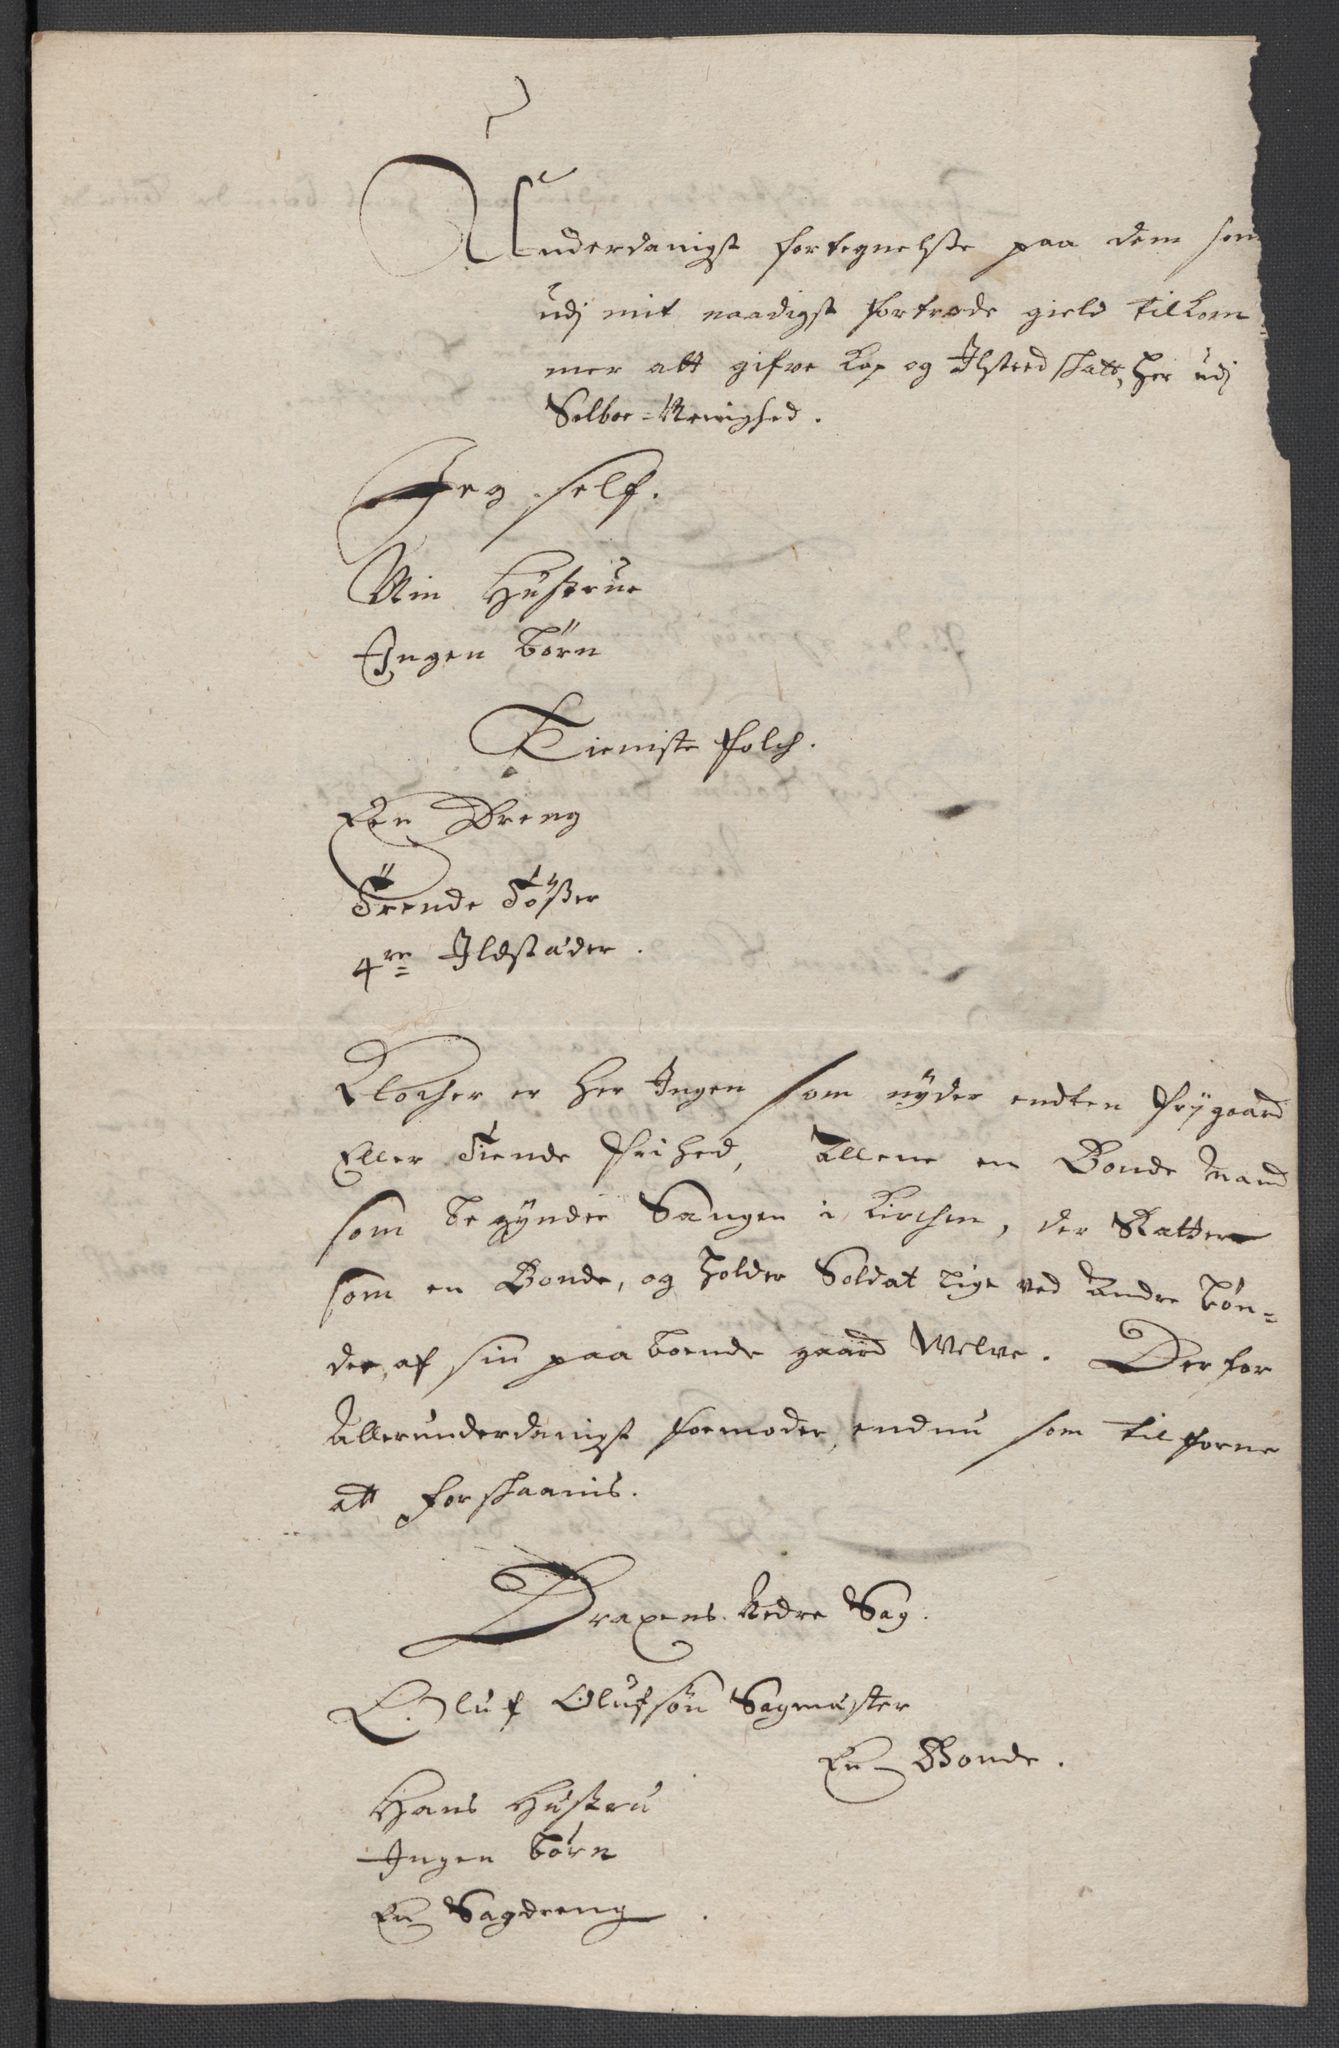 Underdanigst fortegnelsse paa dem som
udj mit naadigst fortrode gield tilkom-
mer att gifve Kop og Ilsted skatt, her udj
Selboe-Menighed.
Jeg self.
Min Hustrue
Ingen börn
Tieniste folch.
Een Dreng
Trende Tösser
4re Ildstæder.
Klocher er her Ingen som nyder endten frijgaard
Eller Tiende frihed, Allene en Bonde Mand
som begynder Sangen i Kirchen, der Skatter
som en Bonde, og holder Soldat lige ved Andre bön-
der, af sin paaboende gaard Welve. Derfor
Allerunderdanigst formoder, endnu som tilforne
att forskaanis.
Draxens Nedre Sag.
Oluf Olufsön Sagmester
En Bonde.
Hans Hustru
Ingen börn
En Sagdreng.